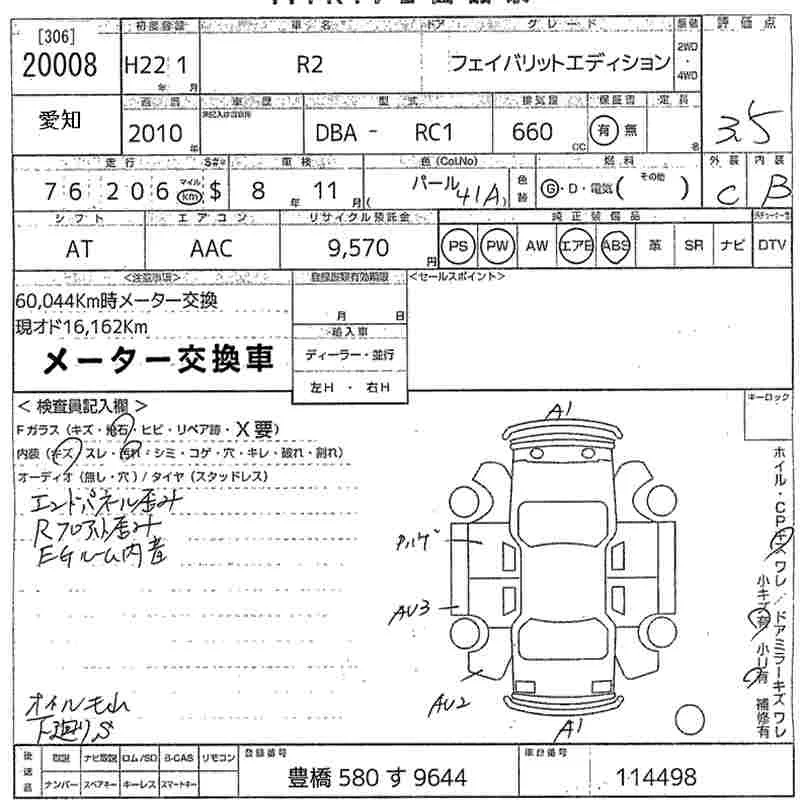 [306]
20008
初度登録
車名
ドア
グレード
駆動
評価点
H22 1
年 月
R2
フェイバリットエディション
2WD
・
4WD
3.5
愛知
車歴
型式
排気量
保証書
定員
2010 年
DBA - RC1
660 CC
有 無
名
走行
S#
車検
色 (Col.No)
色替
燃料
外装
内装
76206 マイル km $
8 年 11 月
パール 41A
G・D・電気 ( その他 )
C
B
シフト
エアコン
リサイクル預託金
純正装備品
AT
AAC
9,570 円
PS
PW
AW
エアB
ABS
革
SR
ナビ
DTV
<注意事項>
登録書類有効期限
<セールスポイント>
60,044Km時メーター交換
現オド16,162Km
メーター交換車
月 日
輸入車
ディーラー・並行
左H ・ 右H
キーロック
< 検査員記入欄 >
Fガラス (キズ・飛石・ヒビ・リペア跡・X要)
内装 (キズ・スレ・汚れ・シミ・コゲ・穴・キレ・破れ・割れ)
オーディオ (無し・穴) / タイヤ (スタッドレス)
エンドパネル歪み
Rフロアト歪み
EGルーム内音
A1
Aハゲ
AU3
AU2
A1
ホイル・CPキズ ワレ / ドアミラーキズ ワレ
小キズ有 小U有 補修有
オイルモレ
下廻りS
後送品
取説
ナビ取説
ロム/SD
B-CAS
リモコン
ナンバー
スペアキー
キーレス
スマートキー
登録番号
豊橋 580 す 9644
車台番号
114498